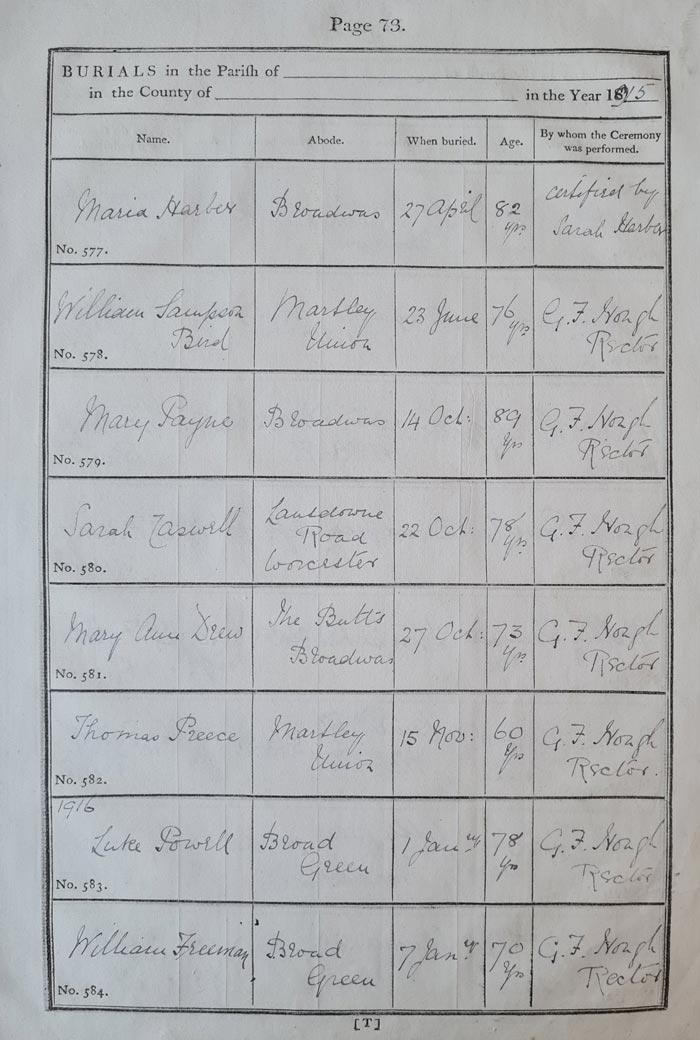 Page 73.
BURIALS in the Parish of
in the County of in the Year 1915
Name. Abode. When buried. Age. By whom the Ceremony was performed.
Maria Harber
No. 577.
Broadwas
27 April
82
yrs
certified by
Sarah Harber
William Sampson
Bird
No. 578.
Martley
Union
23 June
76
yrs
G. F. Hough
Rector
Mary Payne
No. 579.
Broadwas
14 Oct:
89
yrs
G. F. Hough
Rector
Sarah Caswell
No. 580.
Lansdowne
Road
Worcester
22 Oct:
78
yrs
G. F. Hough
Rector
Mary Ann Drew
No. 581.
The Butts
Broadwas
27 Oct:
73
yrs
G. F. Hough
Rector
Thomas Preece
No. 582.
Martley
Union
15 Nov:
60
yrs
G. F. Hough
Rector.
1916
Luke Powell
No. 583.
Broad
Green
1 Janry
78
yrs
G. F. Hough
Rector
William Freeman
No. 584.
Broad
Green
7 Janry
70
yrs
G. F. Hough
Rector
[T]